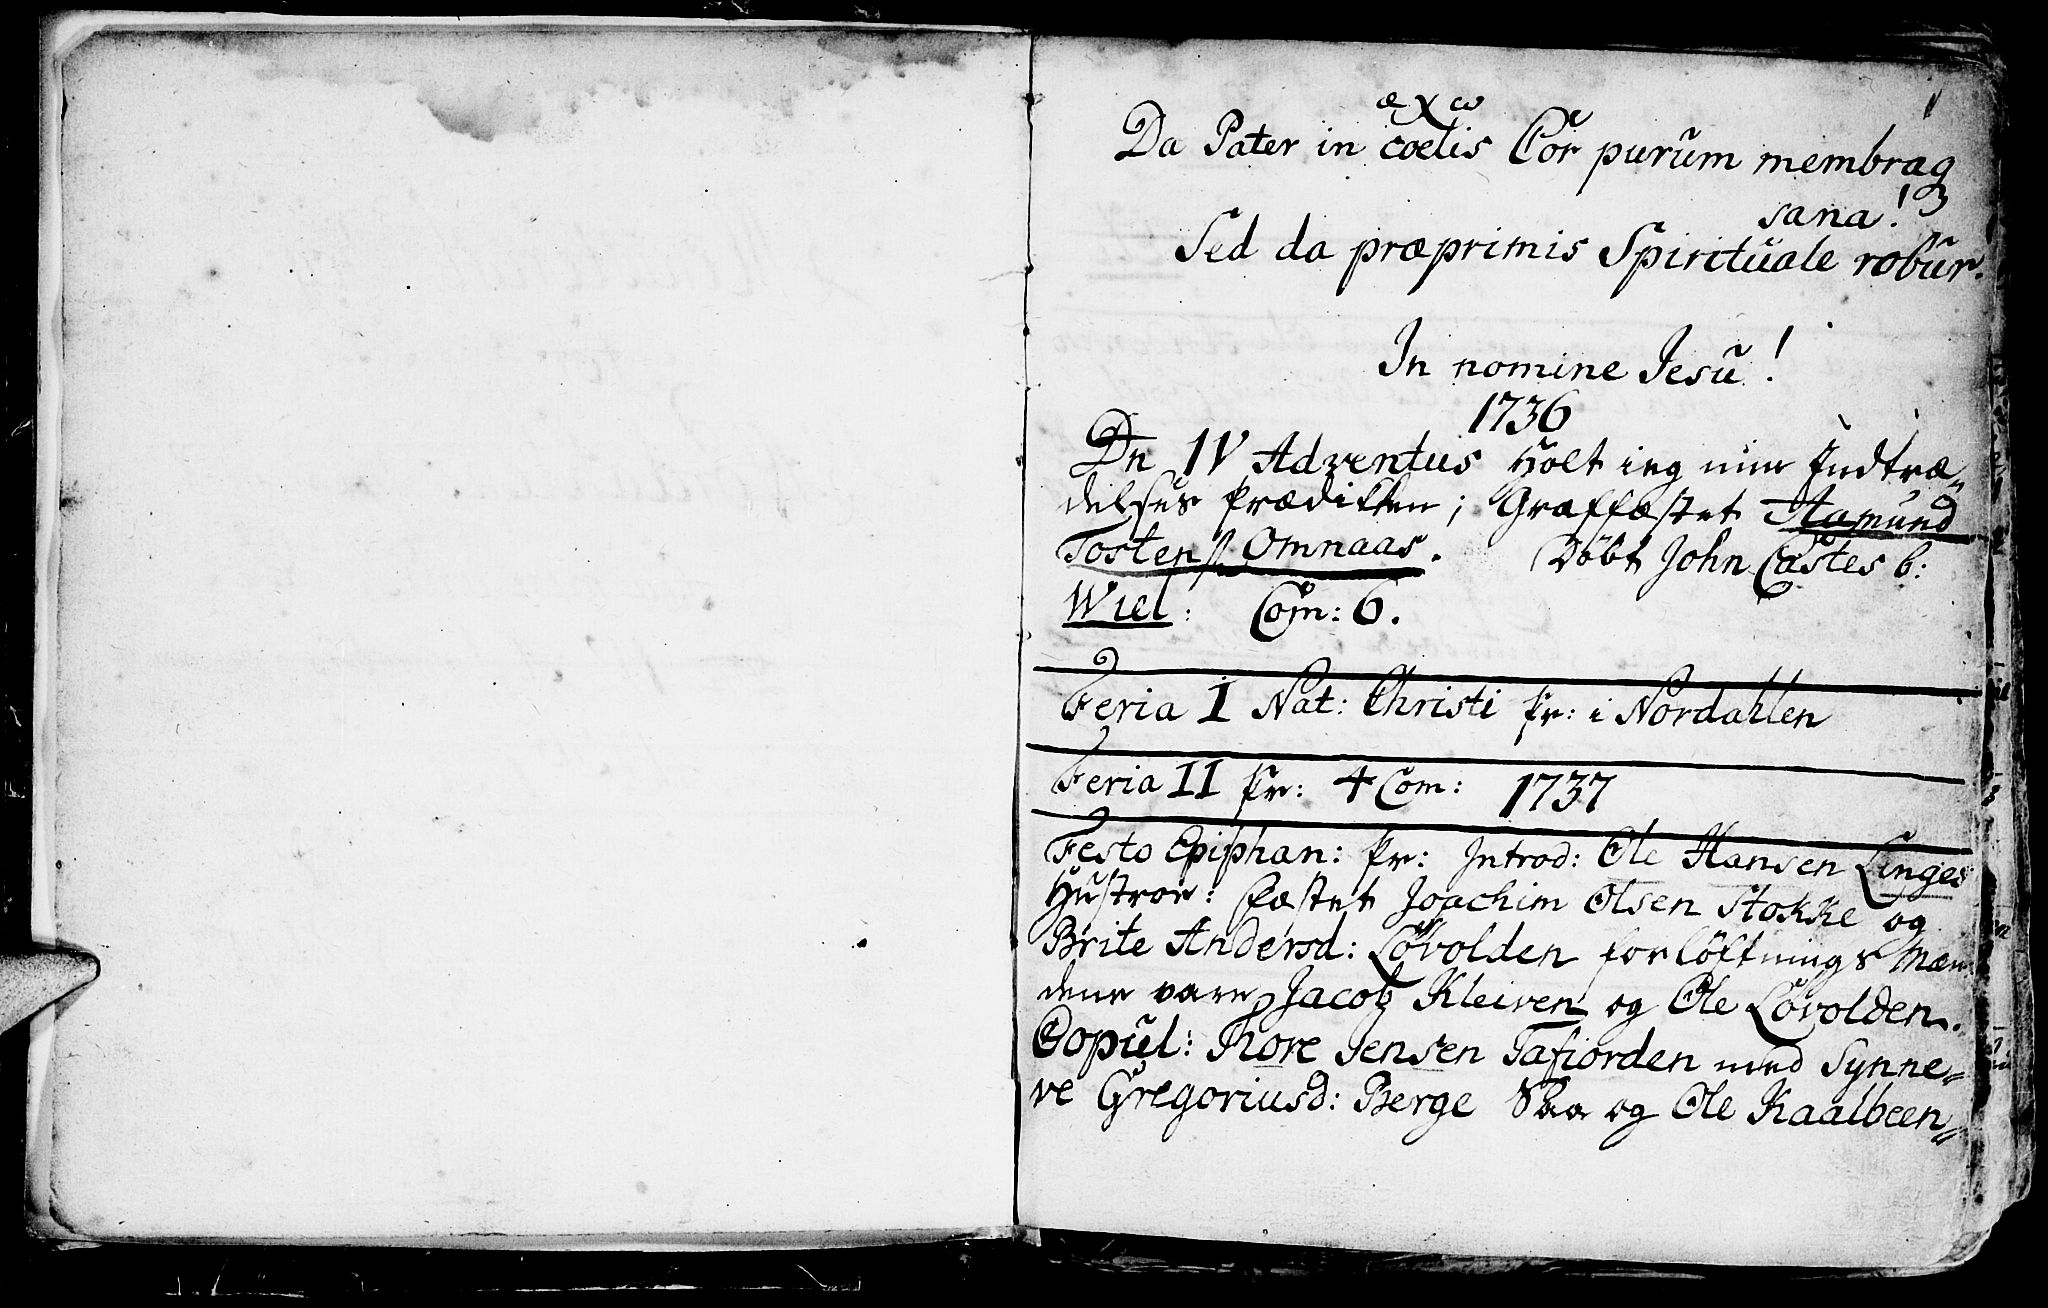 α χ ω
Da Pater in coelis Cor purum membraq
sana!
Sed da præprimis Spirituale robur.
In nomine Jesu!
1736
Dn IV Adventus Holt ieg min Indtræ„
delses Prædiken; Graffæstet Hamund
Tostenß. Omnaas. Døbt John Castes b:
Wiel: Com: 6.
Feria I Nat: Christi Pr: i Nordahlen
Feria II Pr: 4 Com: 1737
Festo Epiphan: Pr: Introd: Ole Hansen Linges
Hustroe: Fæstet Joachim Olsen Stokke og
Brite Andersd: Løvolden forløftnings Mæn
dene vare Jacob Kleiven og Ole Løvolden.
Copul: Thore Jensen Tafiorden med Synne„
ve Gregoriusd: Berge Saa og Ole Kaalbeen„